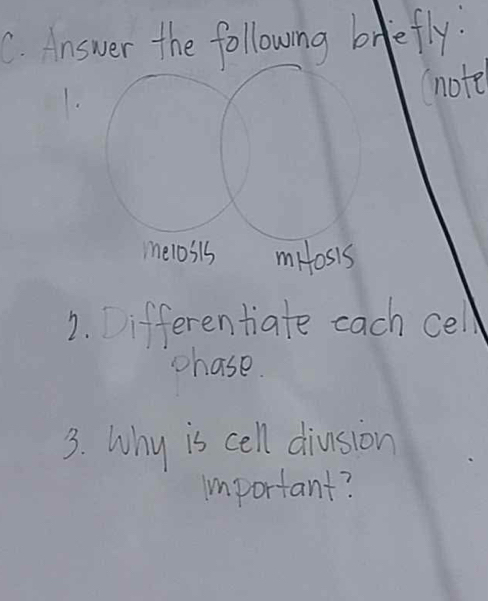 C. Answer the following briefly:
(note
1.
meiosis mitosis
2. Differentiate each cell
phase.
3. Why is cell division
important?